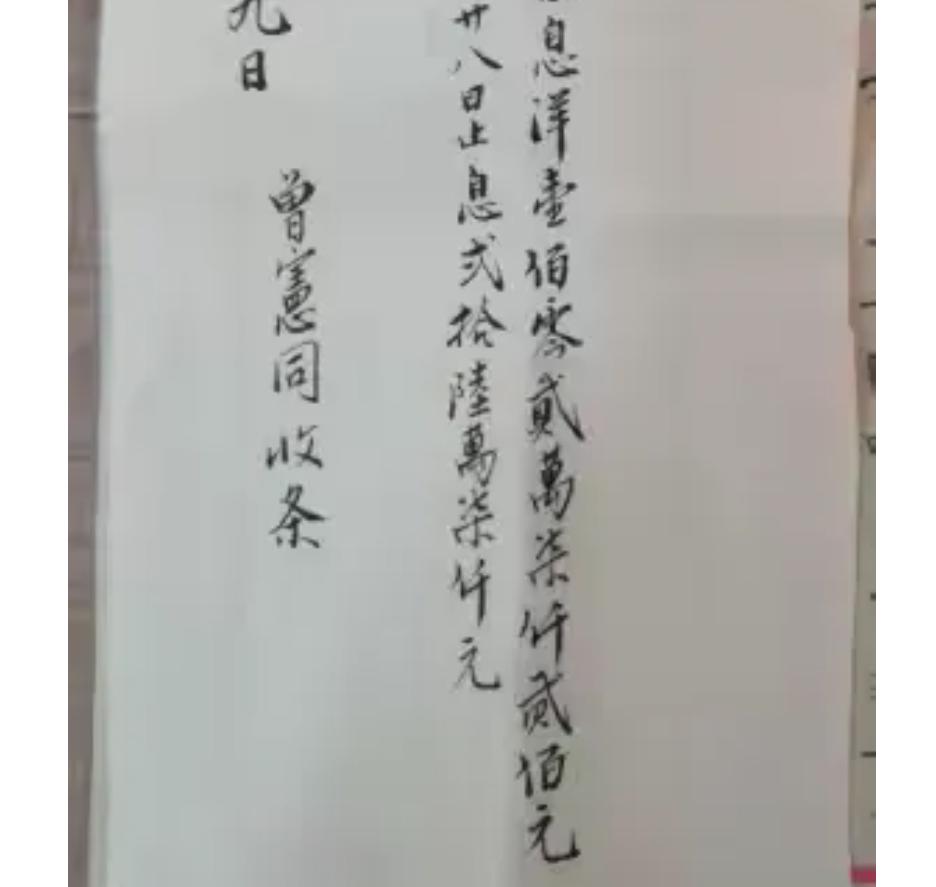 息洋壹佰零貳萬柒仟貳佰元
廿八日止息弍拾陸萬柒仟元
九日
曾憲同收条